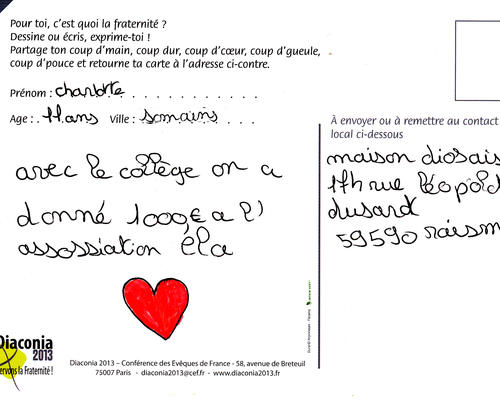 Pour toi, c'est quoi la fraternité ?
Dessine ou écris, exprime-toi !
Partage ton coup d'main, coup dur, coup d'cœur, coup d'gueule,
coup d'pouce et retourne ta carte à l'adresse ci-contre.
Prénom : charlotte
Age : 11ans Ville : somains
avec le collège on a
donné 1000€ a l'
assossiation éla
À envoyer ou à remettre au contact
local ci-dessous
maison diosais
rue léopold
dusart
59590 raism
Diaconia
2013
ervons la Fraternité !
Diaconia 2013 – Conférence des Evêques de France - 58, avenue de Breteuil
75007 Paris - diaconia2013@cef.fr - www.diaconia2013.fr